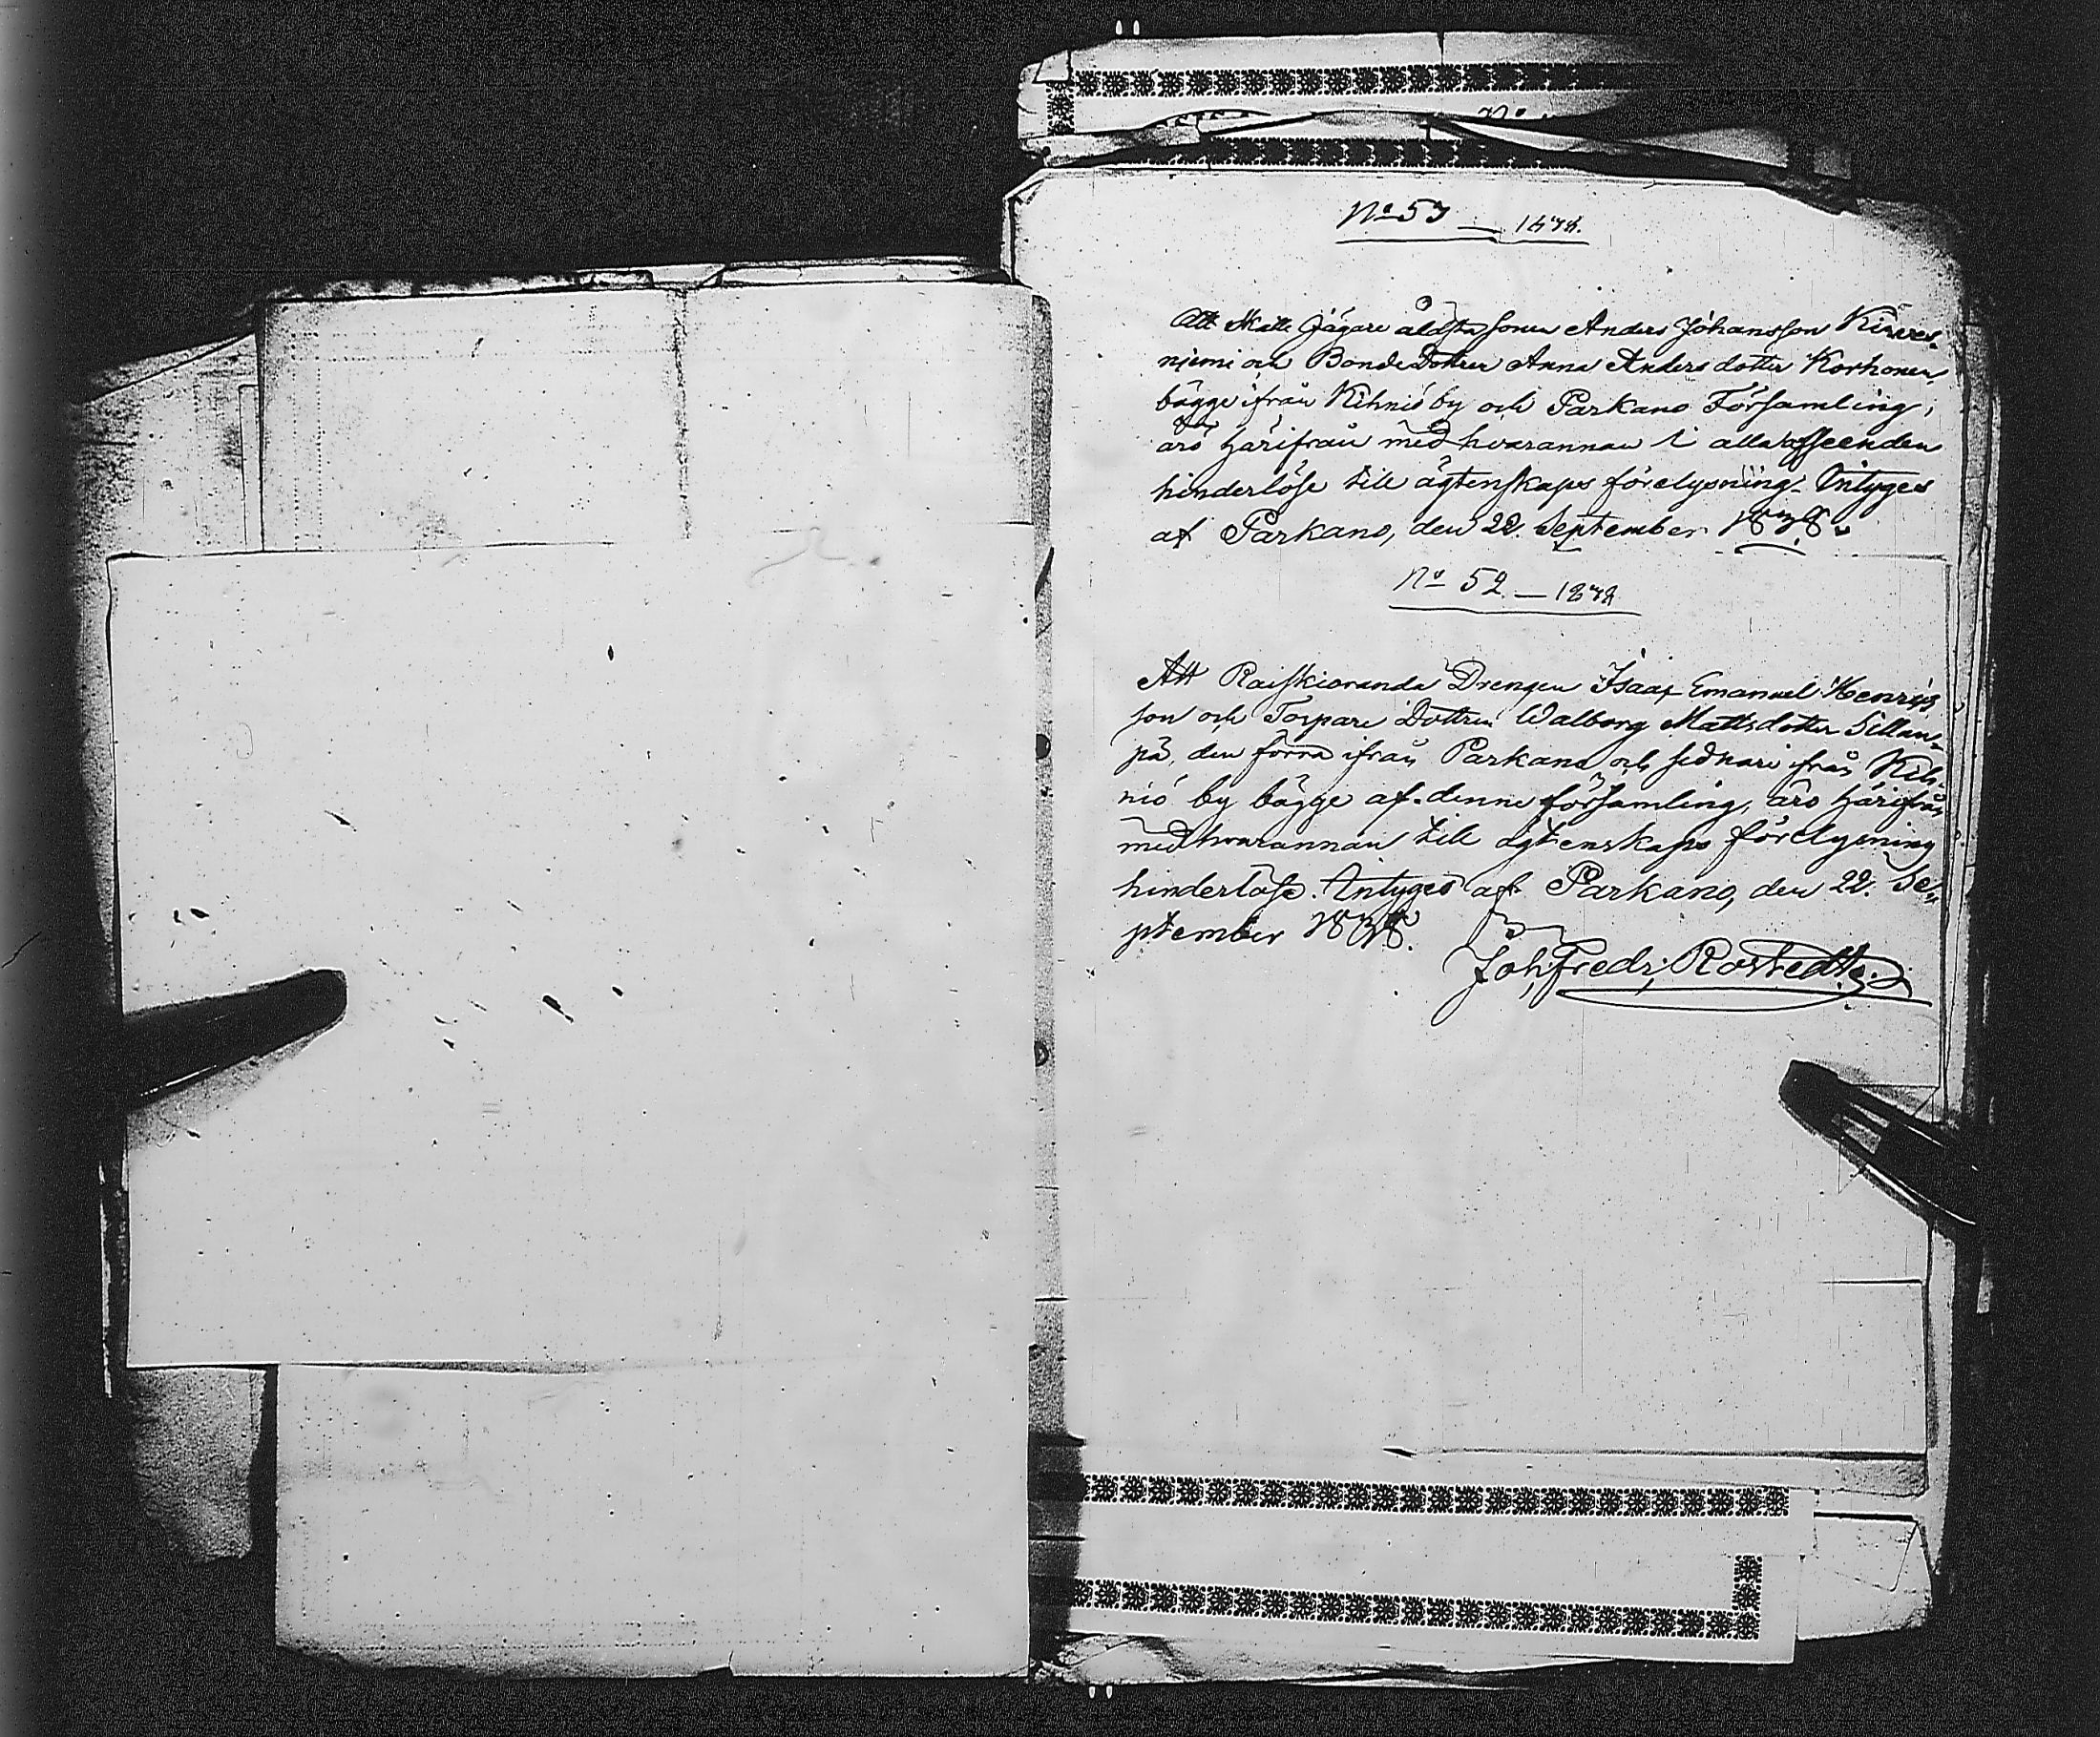 No 57 — 1878.
Att Skatte Jägare äldsta sonen Anders Johansson Kirves-
niemi och Bonde Dottren Anna Anders dotter Korhonen,
bägge ifrån Kihniö by och Parkano Församling,
äro härifrån med hvarannan i alla afseenden
hinderlöse till ägtenskaps förelysning. Intyges
af Parkano, den 22. September 1878.
No 52 — 1878
Att Drengen Isaac Emanuel Henriks
son och Torpare Dottren Walborg Mattsdotter Sillan-
pä, den förra ifrån Parkano och sednare ifrån Kih-
niö by bägge af denne församling, äro härifrån
med hvarannan till ägtenskaps förelysning
hinderlöse. Intyges af Parkano, den 22. Se-
ptember 1878.
Joh, Fredr, Rostedt.